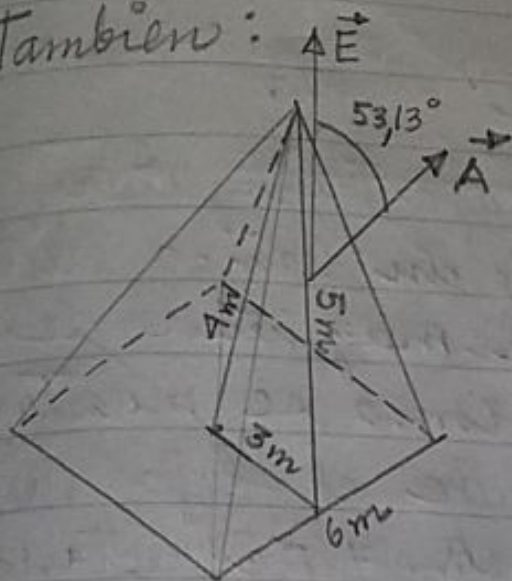 Tambien :
E
53,13°
A
4m
5m
3m
6m